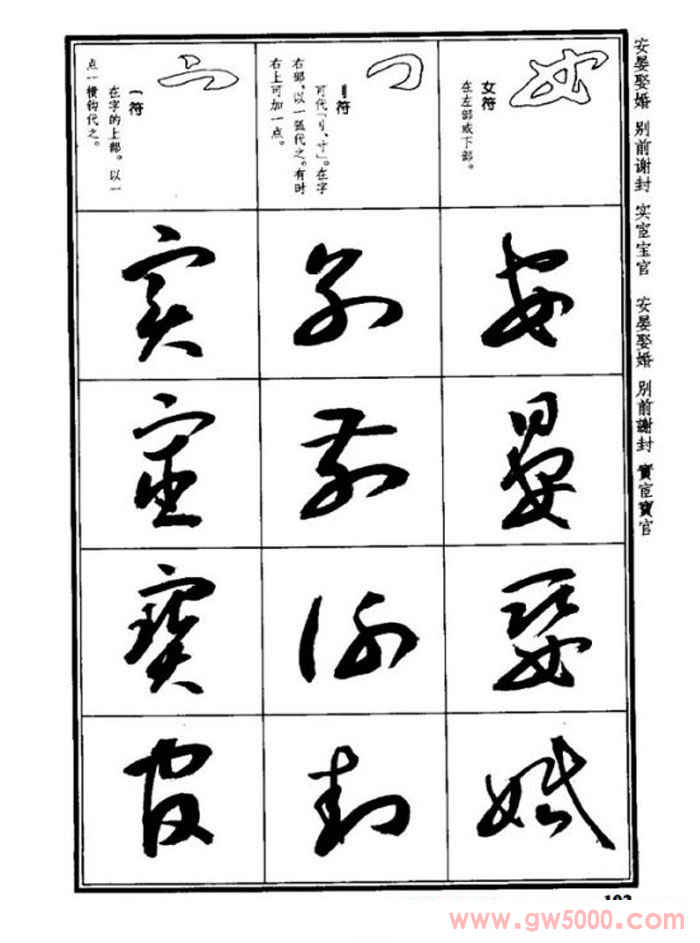 安晏娶婚 别前谢封 实宦宝官 安晏娶婚 别前謝封 實宦寶官
女符
在左部或下部。
安
晏
娶
婚
刂符
可代「刂、寸」。在字
右部，以一弧代之。有时
右上可加一点。
别
前
谢
封
符
在字的上部。以一
点一横钩代之。
實
宦
寶
官
www.gw5000.com